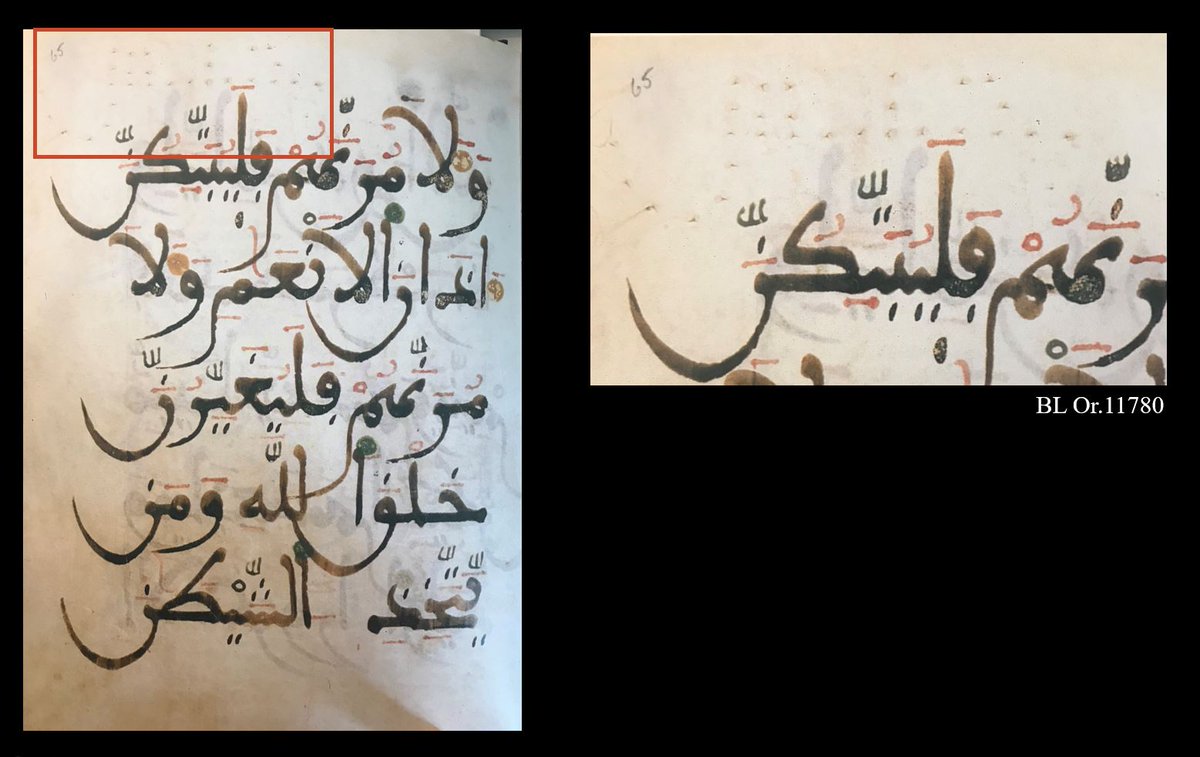 65
ولا مرنهم فليبتكن
اذان الانعم ولا
مرنهم فليغيرن
خلق الله ومن
يتخذ الشيطن
65
نهم فليبتكن
BL Or.11780